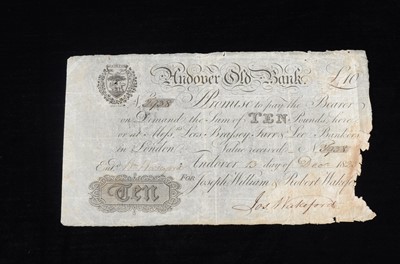 Andover Old Bank. £10
N. 3928 I Promise to pay the Bearer
on Demand the Sum of TEN Pounds, here
or at Mess.rs Lees Brassey Farr & Lee Bankers
in London. Value received N. 3928
Andover 13 day of Dec 18
Ent.
For Joseph William & Robert Wakeford
Ten
Jos Wakeford